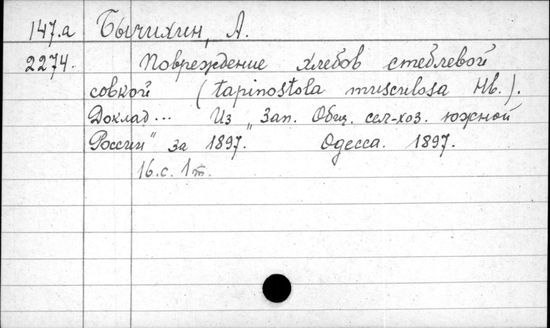 147.а Бычихин, А.
2274. Повреждение хлебов стеблевой
совкой (tapinostola musculosa Hb.).
Доклад... Из „Зап. Общ. сел-хоз. южной
России" за 1897. Одесса. 1897.
16.с. 1т.